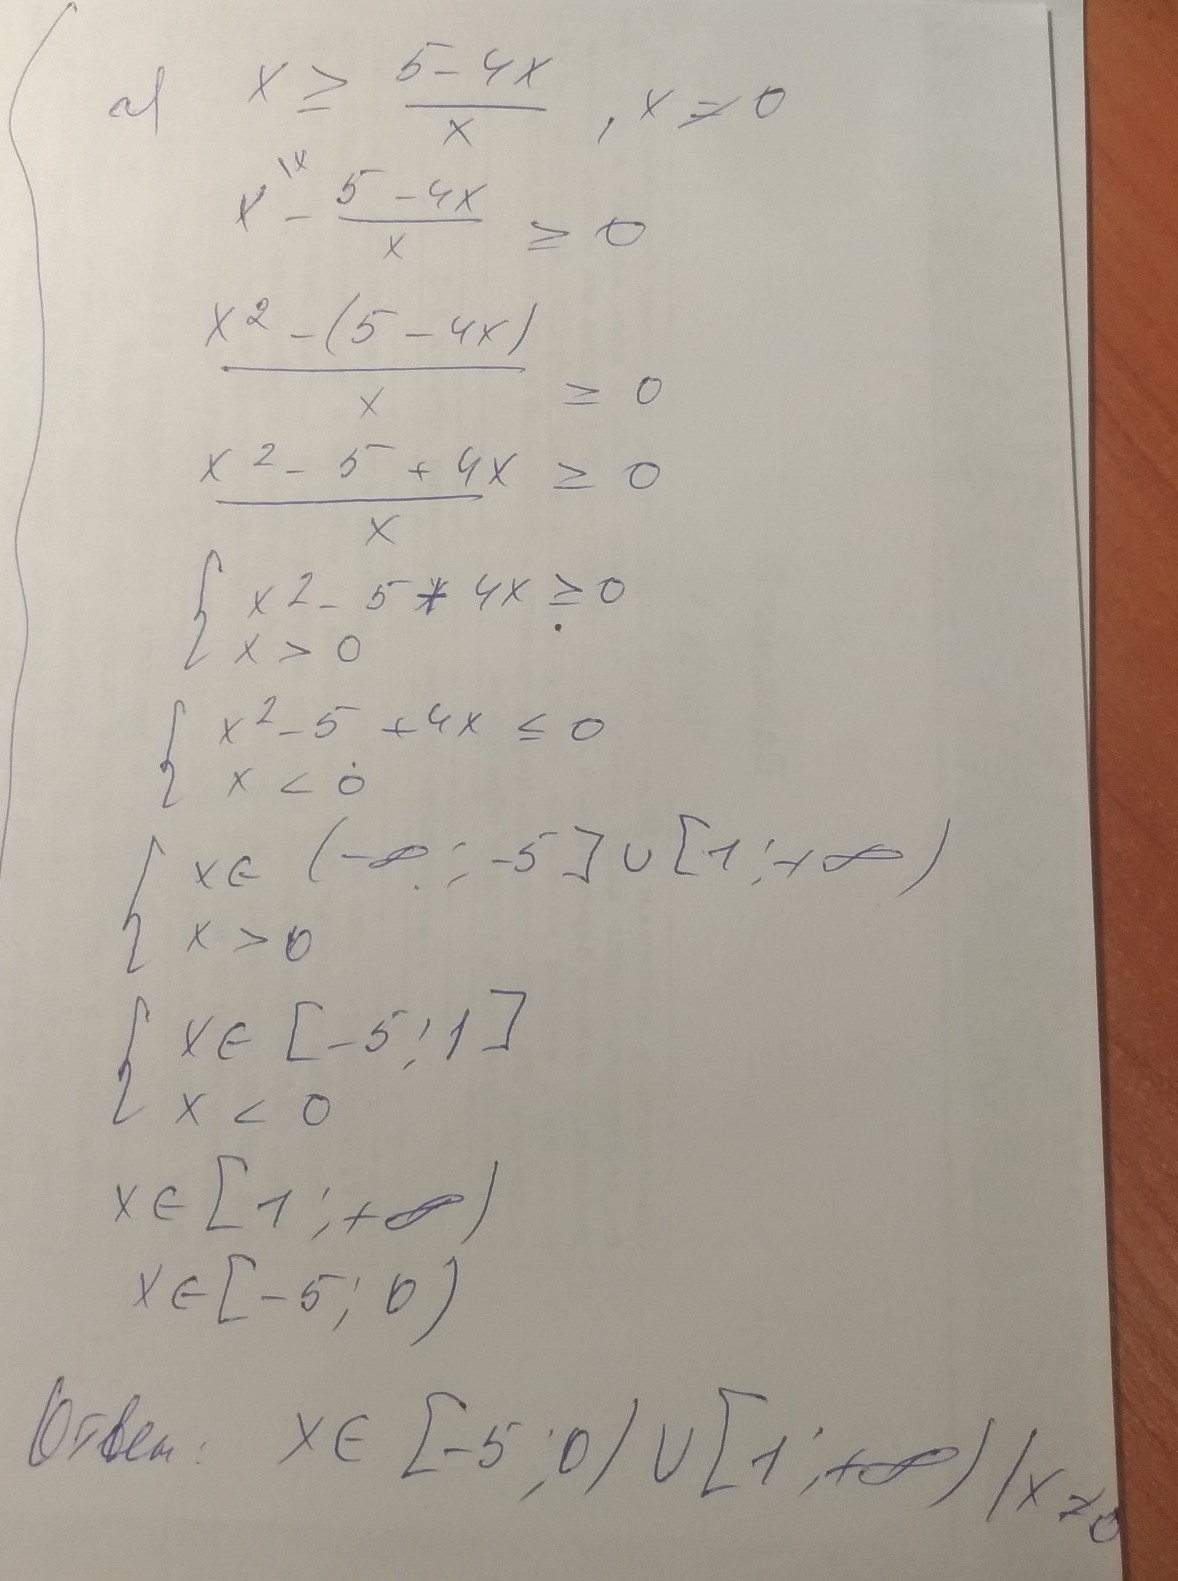 а) x ≥ (5 - 4x)/x , x ≠ 0
x^(\x) - (5 - 4x)/x ≥ 0
(x² - (5 - 4x))/x ≥ 0
(x² - 5 + 4x)/x ≥ 0
{ x² - 5 + 4x ≥ 0
x > 0
{ x² - 5 + 4x ≤ 0
x < 0
{ x ∈ (-∞; -5] ∪ [1; +∞)
x > 0
{ x ∈ [-5; 1]
x < 0
x ∈ [1; +∞)
x ∈ [-5; 0)
Ответ: x ∈ [-5; 0) ∪ [1; +∞) / x ≠ 0